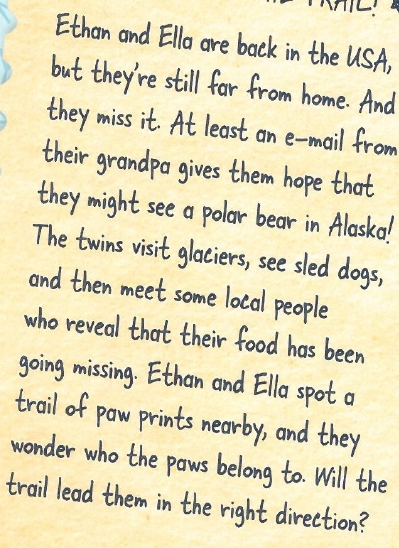 TRAIL!
Ethan and Ella are back in the USA,
but they're still far from home. And
they miss it. At least an e-mail from
their grandpa gives them hope that
they might see a polar bear in Alaska!
The twins visit glaciers, see sled dogs,
and then meet some local people
who reveal that their food has been
going missing. Ethan and Ella spot a
trail of paw prints nearby, and they
wonder who the paws belong to. Will the
trail lead them in the right direction?